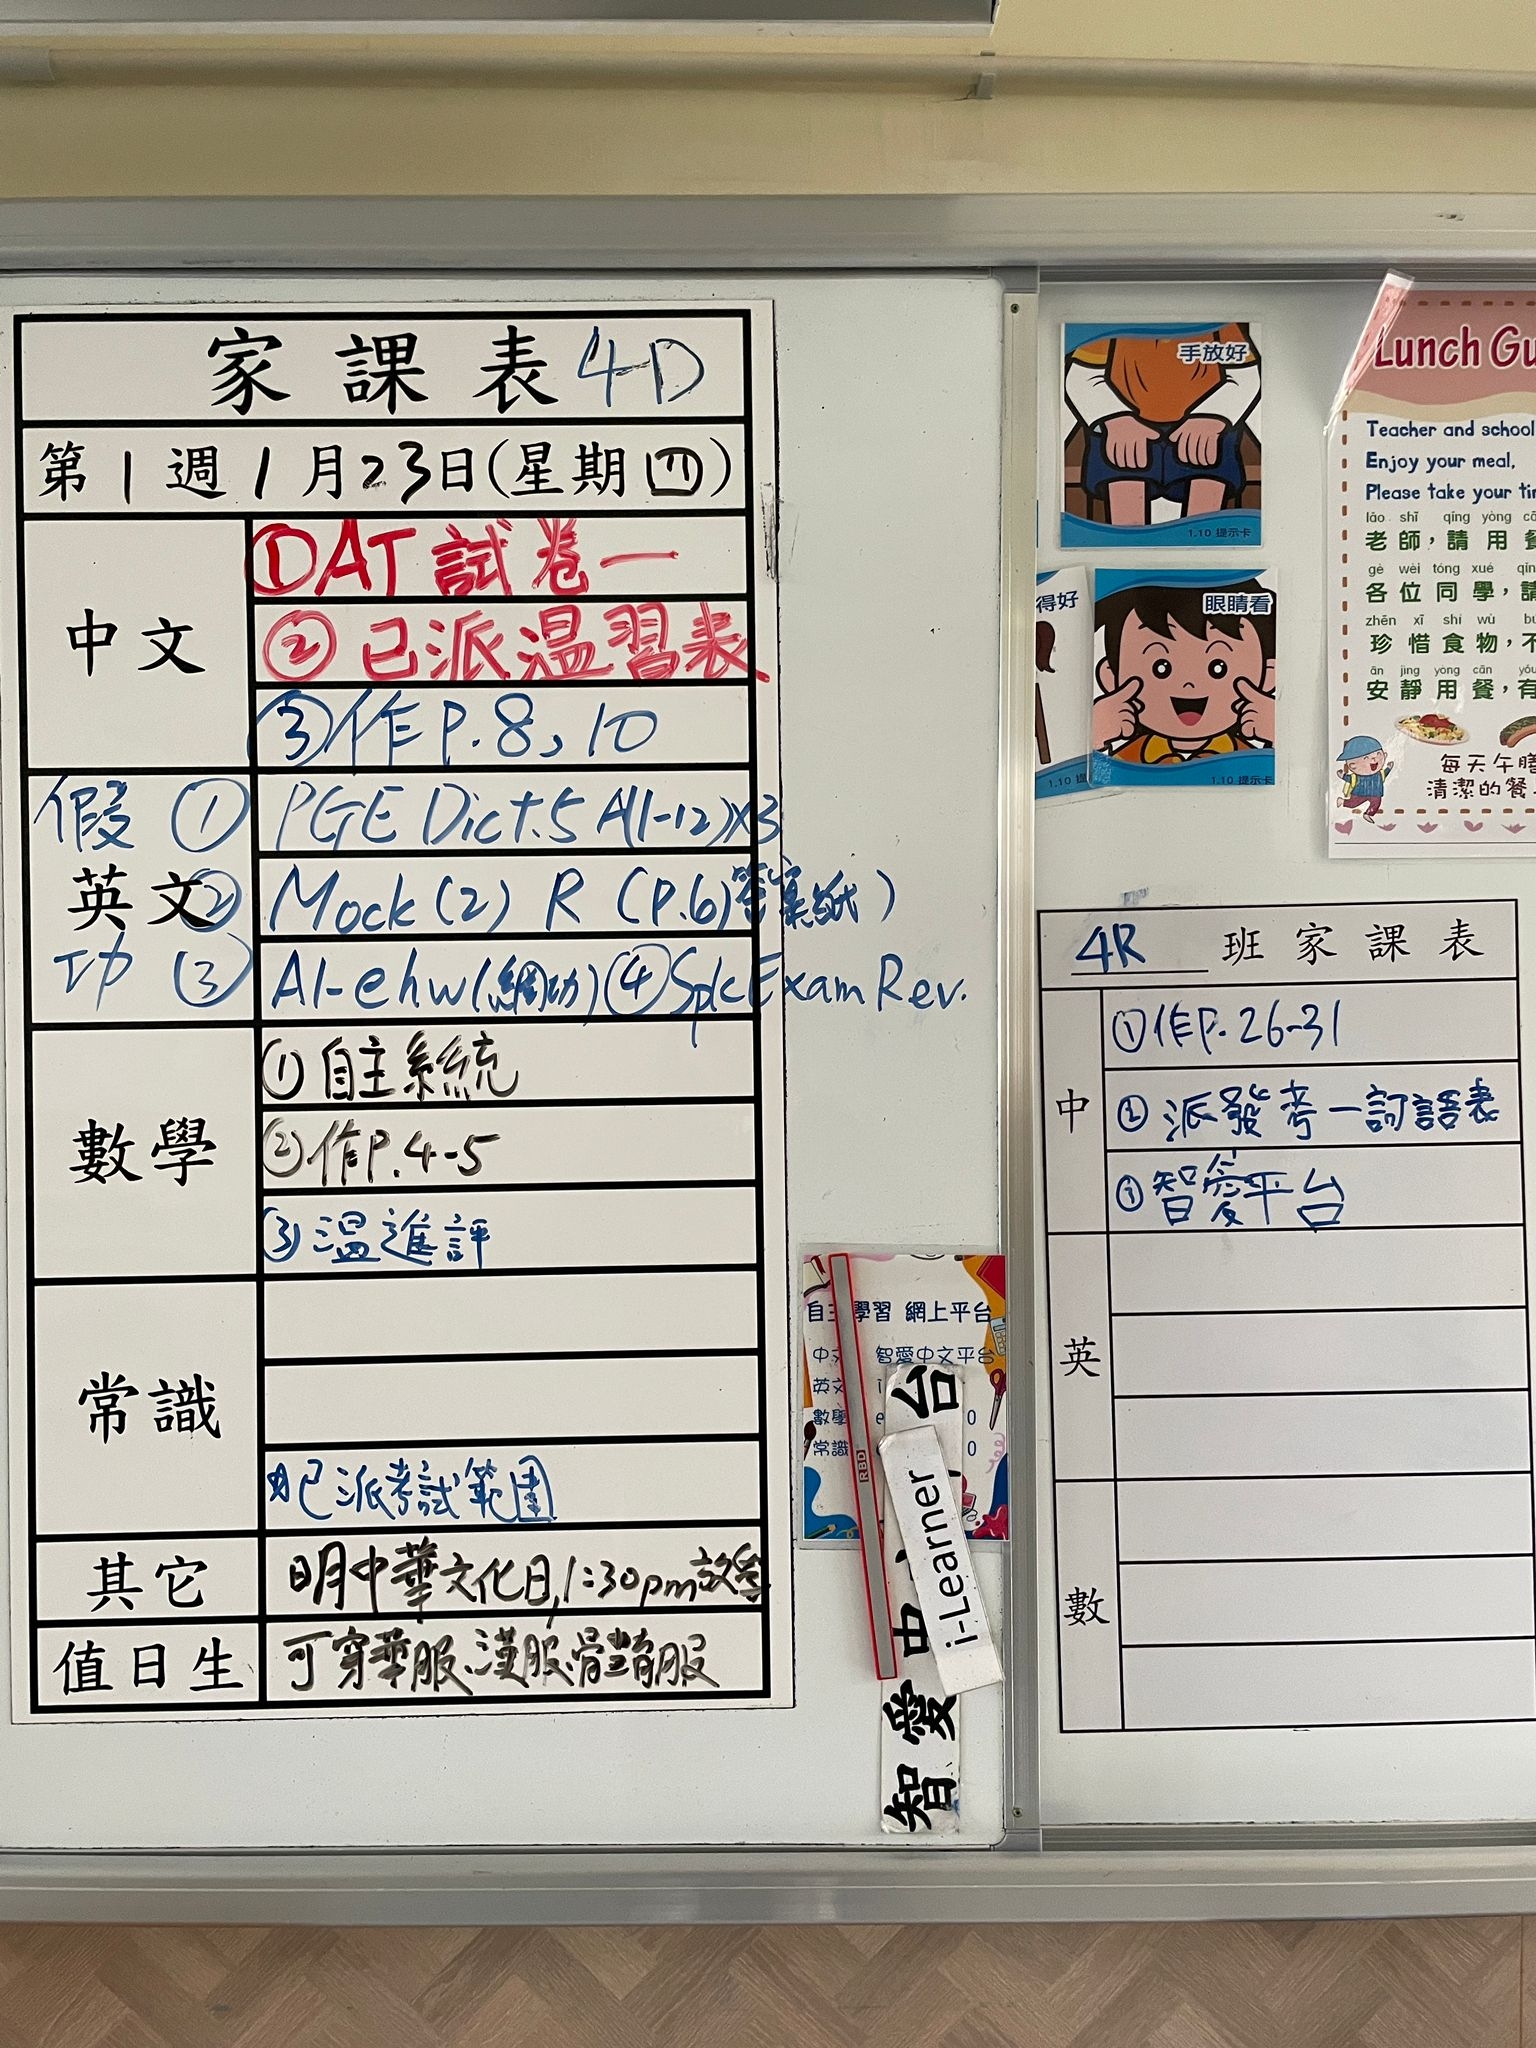 家課表 4D
第1週1月23日(星期四)
中文
①DAT試卷一
②已派溫習表
③作P.8,10
假
英文
功
① PGE Dict.5 A(1-12)x3
② Mock(2) R (P.6)答案紙)
③ AI-ehw(網功)④Spk Exam Rev.
數學
①自主系統
②作P.4-5
③溫進評
常識
已派考試範圍
其它
明中華文化日,1:30pm放學
值日生
可穿華服、漢服、
手放好
1.10 提示卡
得好
1.10 提
眼睛看
1.10 提示卡
Lunch Gu
Teacher and school
Enjoy your meal,
Please take your tim
lǎo shī qǐng yòng cā
老師,請用餐
gè wèi tóng xué qǐn
各位同學,請
zhēn xī shí wù bú
珍惜食物,不
ān jìng yòng cān yǒu
安靜用餐,有
每天午膳
清潔的餐
4R 班家課表
中
①作P.26-31
②派發考一詞語表
③智愛平台
英
數
自主學習 網上平台
中文 智愛中文平台
英文 i
數學 e 0
常識 0
RBD
i-Learner
智愛中 台